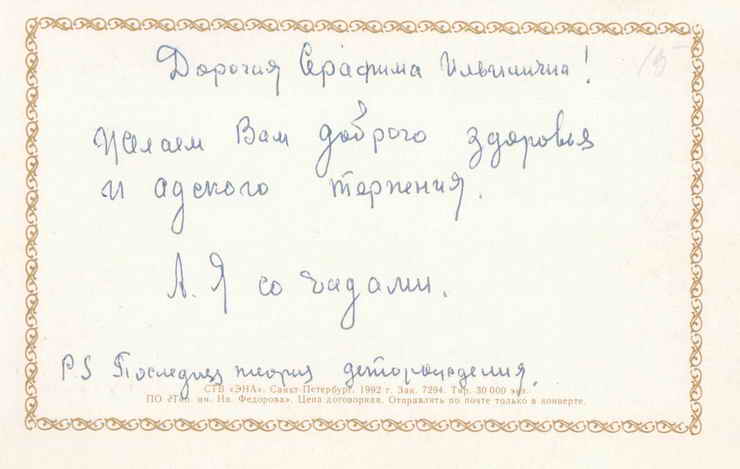 Дорогая Серафима Ильинична!
15
Желаем Вам доброго здоровья
и адского терпения.
А. Я со чадами.
PS Последняя теория деторождения.
СТВ «ЭНА». Санкт-Петербург. 1992 г. Зак. 7294. Тир. 30 000 экз.
ПО «Тип. им. Ив. Федорова». Цена договорная. Отправлять по почте только в конверте.